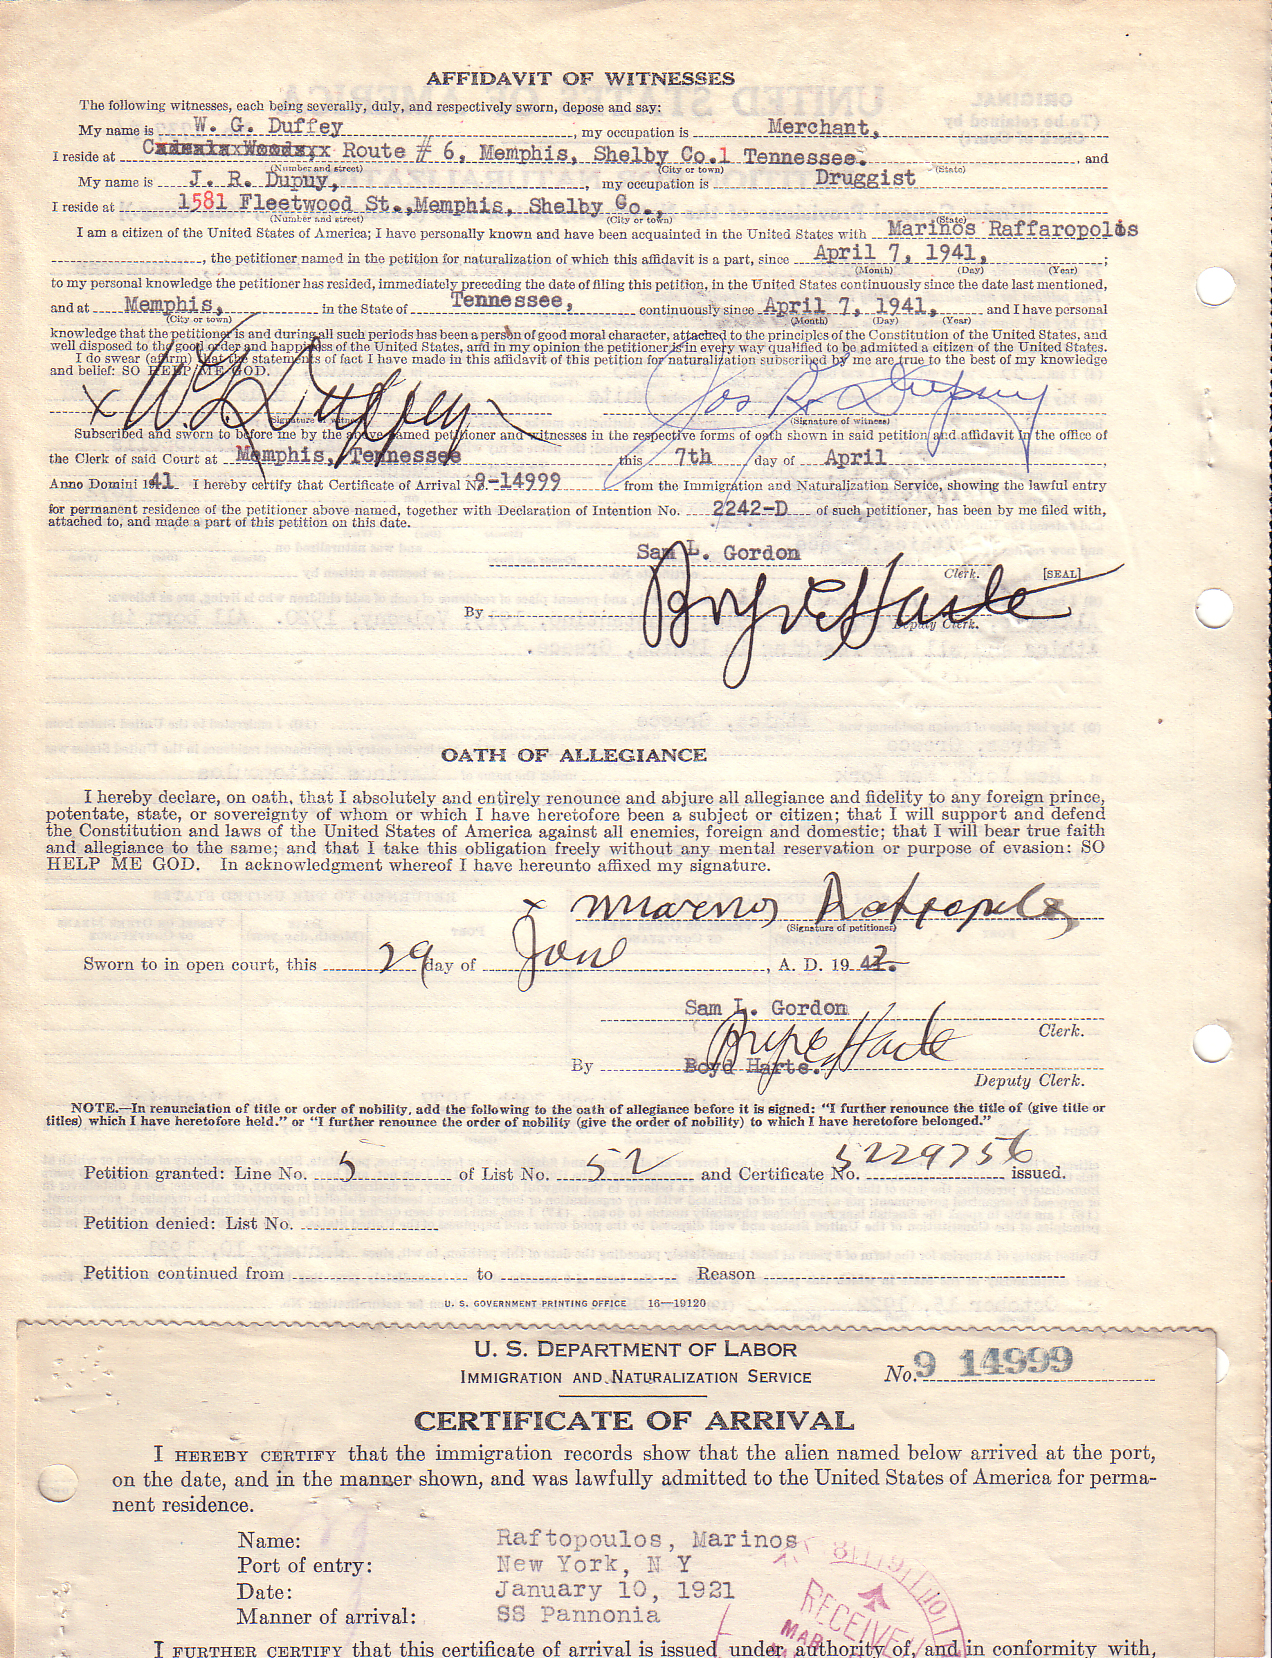 AFFIDAVIT OF WITNESSES
The following witnesses, each being severally, duly, and respectively sworn, depose and say:
My name is W. G. Duffey, my occupation is Merchant,
I reside at Route # 6, Memphis, Shelby Co.1 Tennessee. , and
(Number and street) (City or town) (State)
My name is J. R. Dupuy, , my occupation is Druggist
I reside at 1581 Fleetwood St.,Memphis, Shelby Co.,
(Number and street) (City or town) (State)
I am a citizen of the United States of America; I have personally known and have been acquainted in the United States with Marinos Raffaropolis
, the petitioner named in the petition for naturalization of which this affidavit is a part, since April 7, 1941, ;
(Month) (Day) (Year)
to my personal knowledge the petitioner has resided, immediately preceding the date of filing this petition, in the United States continuously since the date last mentioned,
and at Memphis, in the State of Tennessee, continuously since April 7, 1941, and I have personal
(City or town) (Month) (Day) (Year)
knowledge that the petitioner is and during all such periods has been a person of good moral character, attached to the principles of the Constitution of the United States, and
well disposed to the good order and happiness of the United States, and in my opinion the petitioner is in every way qualified to be admitted a citizen of the United States.
I do swear (affirm) that the statements of fact I have made in this affidavit of this petition for naturalization subscribed by me are true to the best of my knowledge
and belief: SO HELP ME GOD.
x W G Duffey Jos R Dupuy
(Signature of witness) (Signature of witness)
Subscribed and sworn to before me by the above named petitioner and witnesses in the respective forms of oath shown in said petition and affidavit in the office of
the Clerk of said Court at Memphis, Tennessee this 7th day of April ,
Anno Domini 1941 I hereby certify that Certificate of Arrival No. 9-14999 from the Immigration and Naturalization Service, showing the lawful entry
for permanent residence of the petitioner above named, together with Declaration of Intention No. 2242-D of such petitioner, has been by me filed with,
attached to, and made a part of this petition on this date.
Sam L. Gordon
Clerk. [SEAL]
By Boyd Harte
Deputy Clerk.
OATH OF ALLEGIANCE
I hereby declare, on oath, that I absolutely and entirely renounce and abjure all allegiance and fidelity to any foreign prince,
potentate, state, or sovereignty of whom or which I have heretofore been a subject or citizen; that I will support and defend
the Constitution and laws of the United States of America against all enemies, foreign and domestic; that I will bear true faith
and allegiance to the same; and that I take this obligation freely without any mental reservation or purpose of evasion: SO
HELP ME GOD. In acknowledgment whereof I have hereunto affixed my signature.
x Marinos
(Signature of petitioner)
Sworn to in open court, this 29 day of June , A. D. 1942.
Sam L. Gordon
Clerk.
By Boyd Harte.
Deputy Clerk.
NOTE.—In renunciation of title or order of nobility, add the following to the oath of allegiance before it is signed: "I further renounce the title of (give title or
titles) which I have heretofore held." or "I further renounce the order of nobility (give the order of nobility) to which I have heretofore belonged."
Petition granted: Line No. 5 of List No. 52 and Certificate No. 5229756 issued.
Petition denied: List No.
Petition continued from to Reason
U. S. GOVERNMENT PRINTING OFFICE 16—19120
U. S. DEPARTMENT OF LABOR
IMMIGRATION AND NATURALIZATION SERVICE
No. 9 14999
CERTIFICATE OF ARRIVAL
I HEREBY CERTIFY that the immigration records show that the alien named below arrived at the port,
on the date, and in the manner shown, and was lawfully admitted to the United States of America for perma-
nent residence.
Name: Raftopoulos, Marinos
Port of entry: New York, N Y
Date: January 10, 1921
Manner of arrival: SS Pannonia
RECEIVE
MAR
I FURTHER CERTIFY that this certificate of arrival is issued under authority of, and in conformity with,